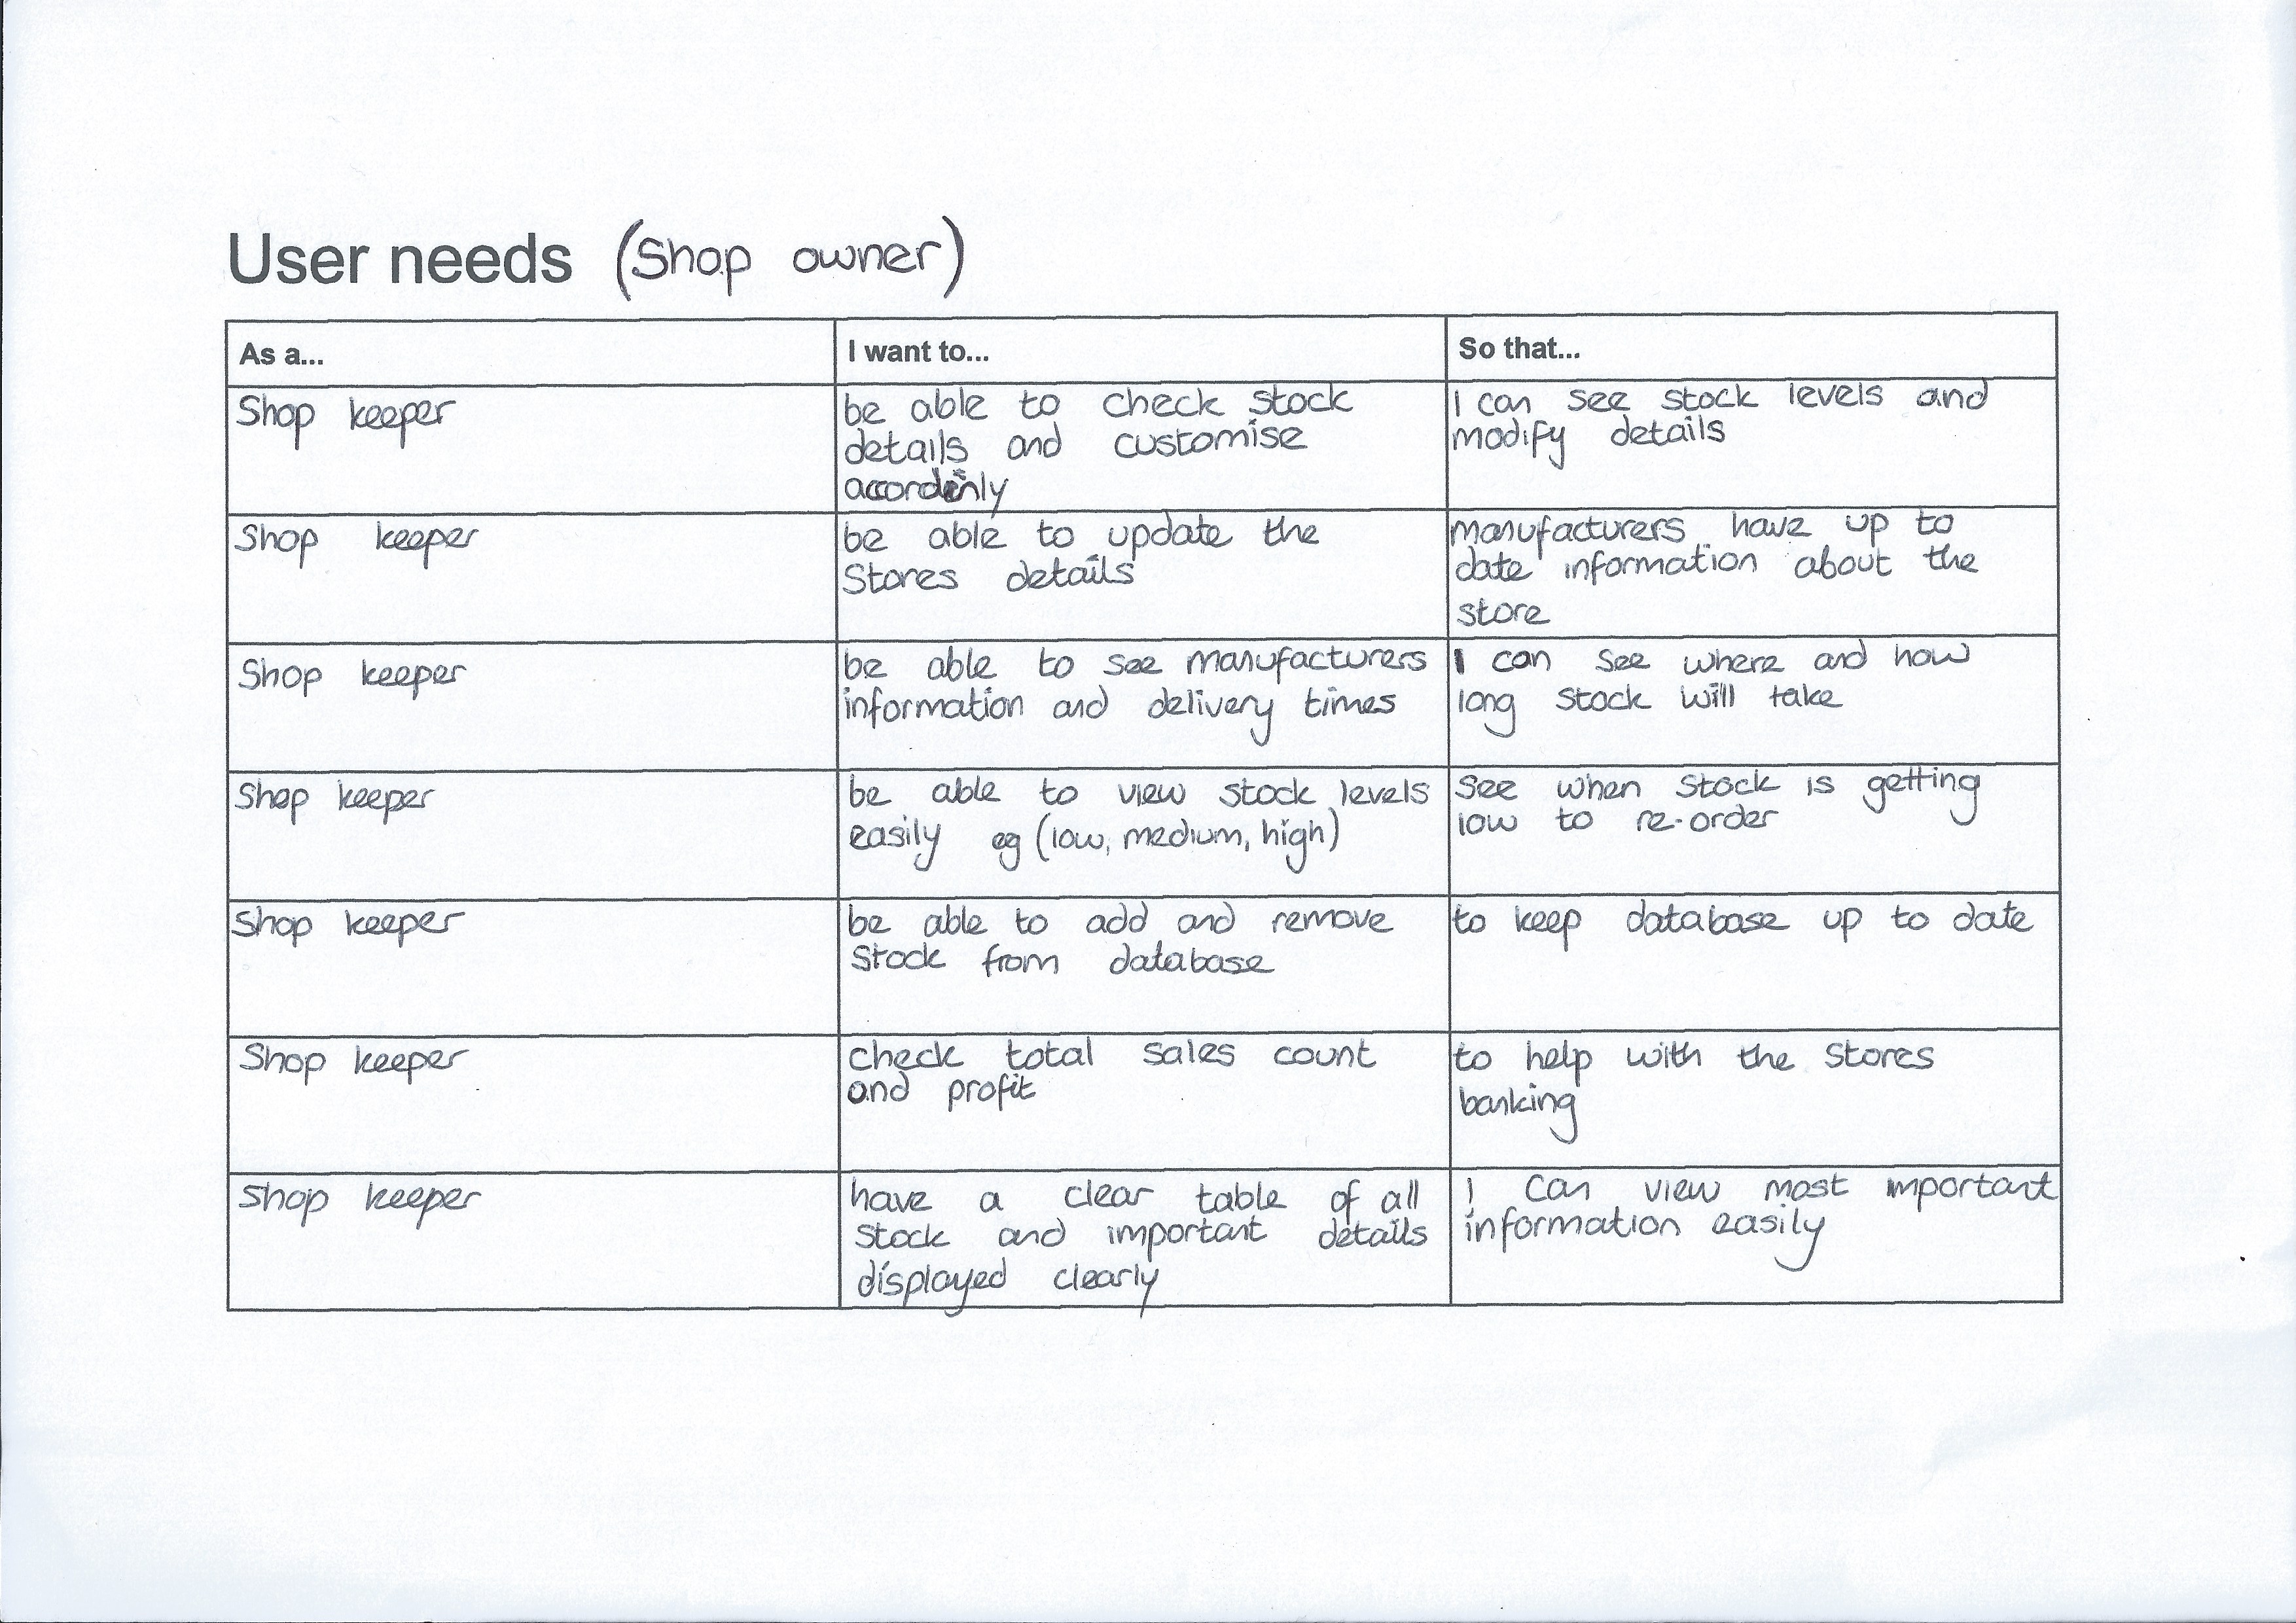 User needs (Shop owner)
As a...
I want to...
So that...
Shop keeper
be able to check stock
details and customise
accordinly
I can see stock levels and
modify details
Shop keeper
be able to update the
Stores details
manufacturers have up to
date information about the
store
Shop keeper
be able to see manufacturers
information and delivery times
I can see where and how
long stock will take
Shop keeper
be able to view stock levels
easily eg (low, medium, high)
See when stock is getting
low to re-order
Shop keeper
be able to add and remove
Stock from database
to keep database up to date
Shop keeper
check total sales count
and profit
to help with the stores
banking
Shop keeper
have a clear table of all
stock and important details
displayed clearly
I can view most important
information easily